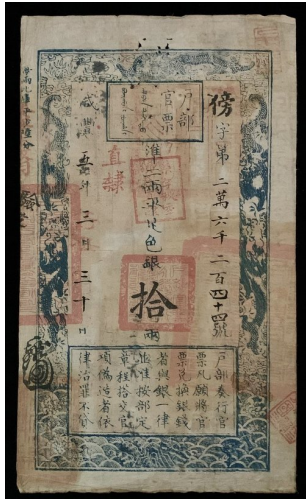 户部
官票
傍字第二萬六千二百四十四號
準二兩平足色銀拾兩
直隸
咸豐五年三月三十日
户部奏行官
票凡願將官
票兌換銀錢
者與銀一律
並准按部定
章程搭交官
項偽造者依
律治罪不貸